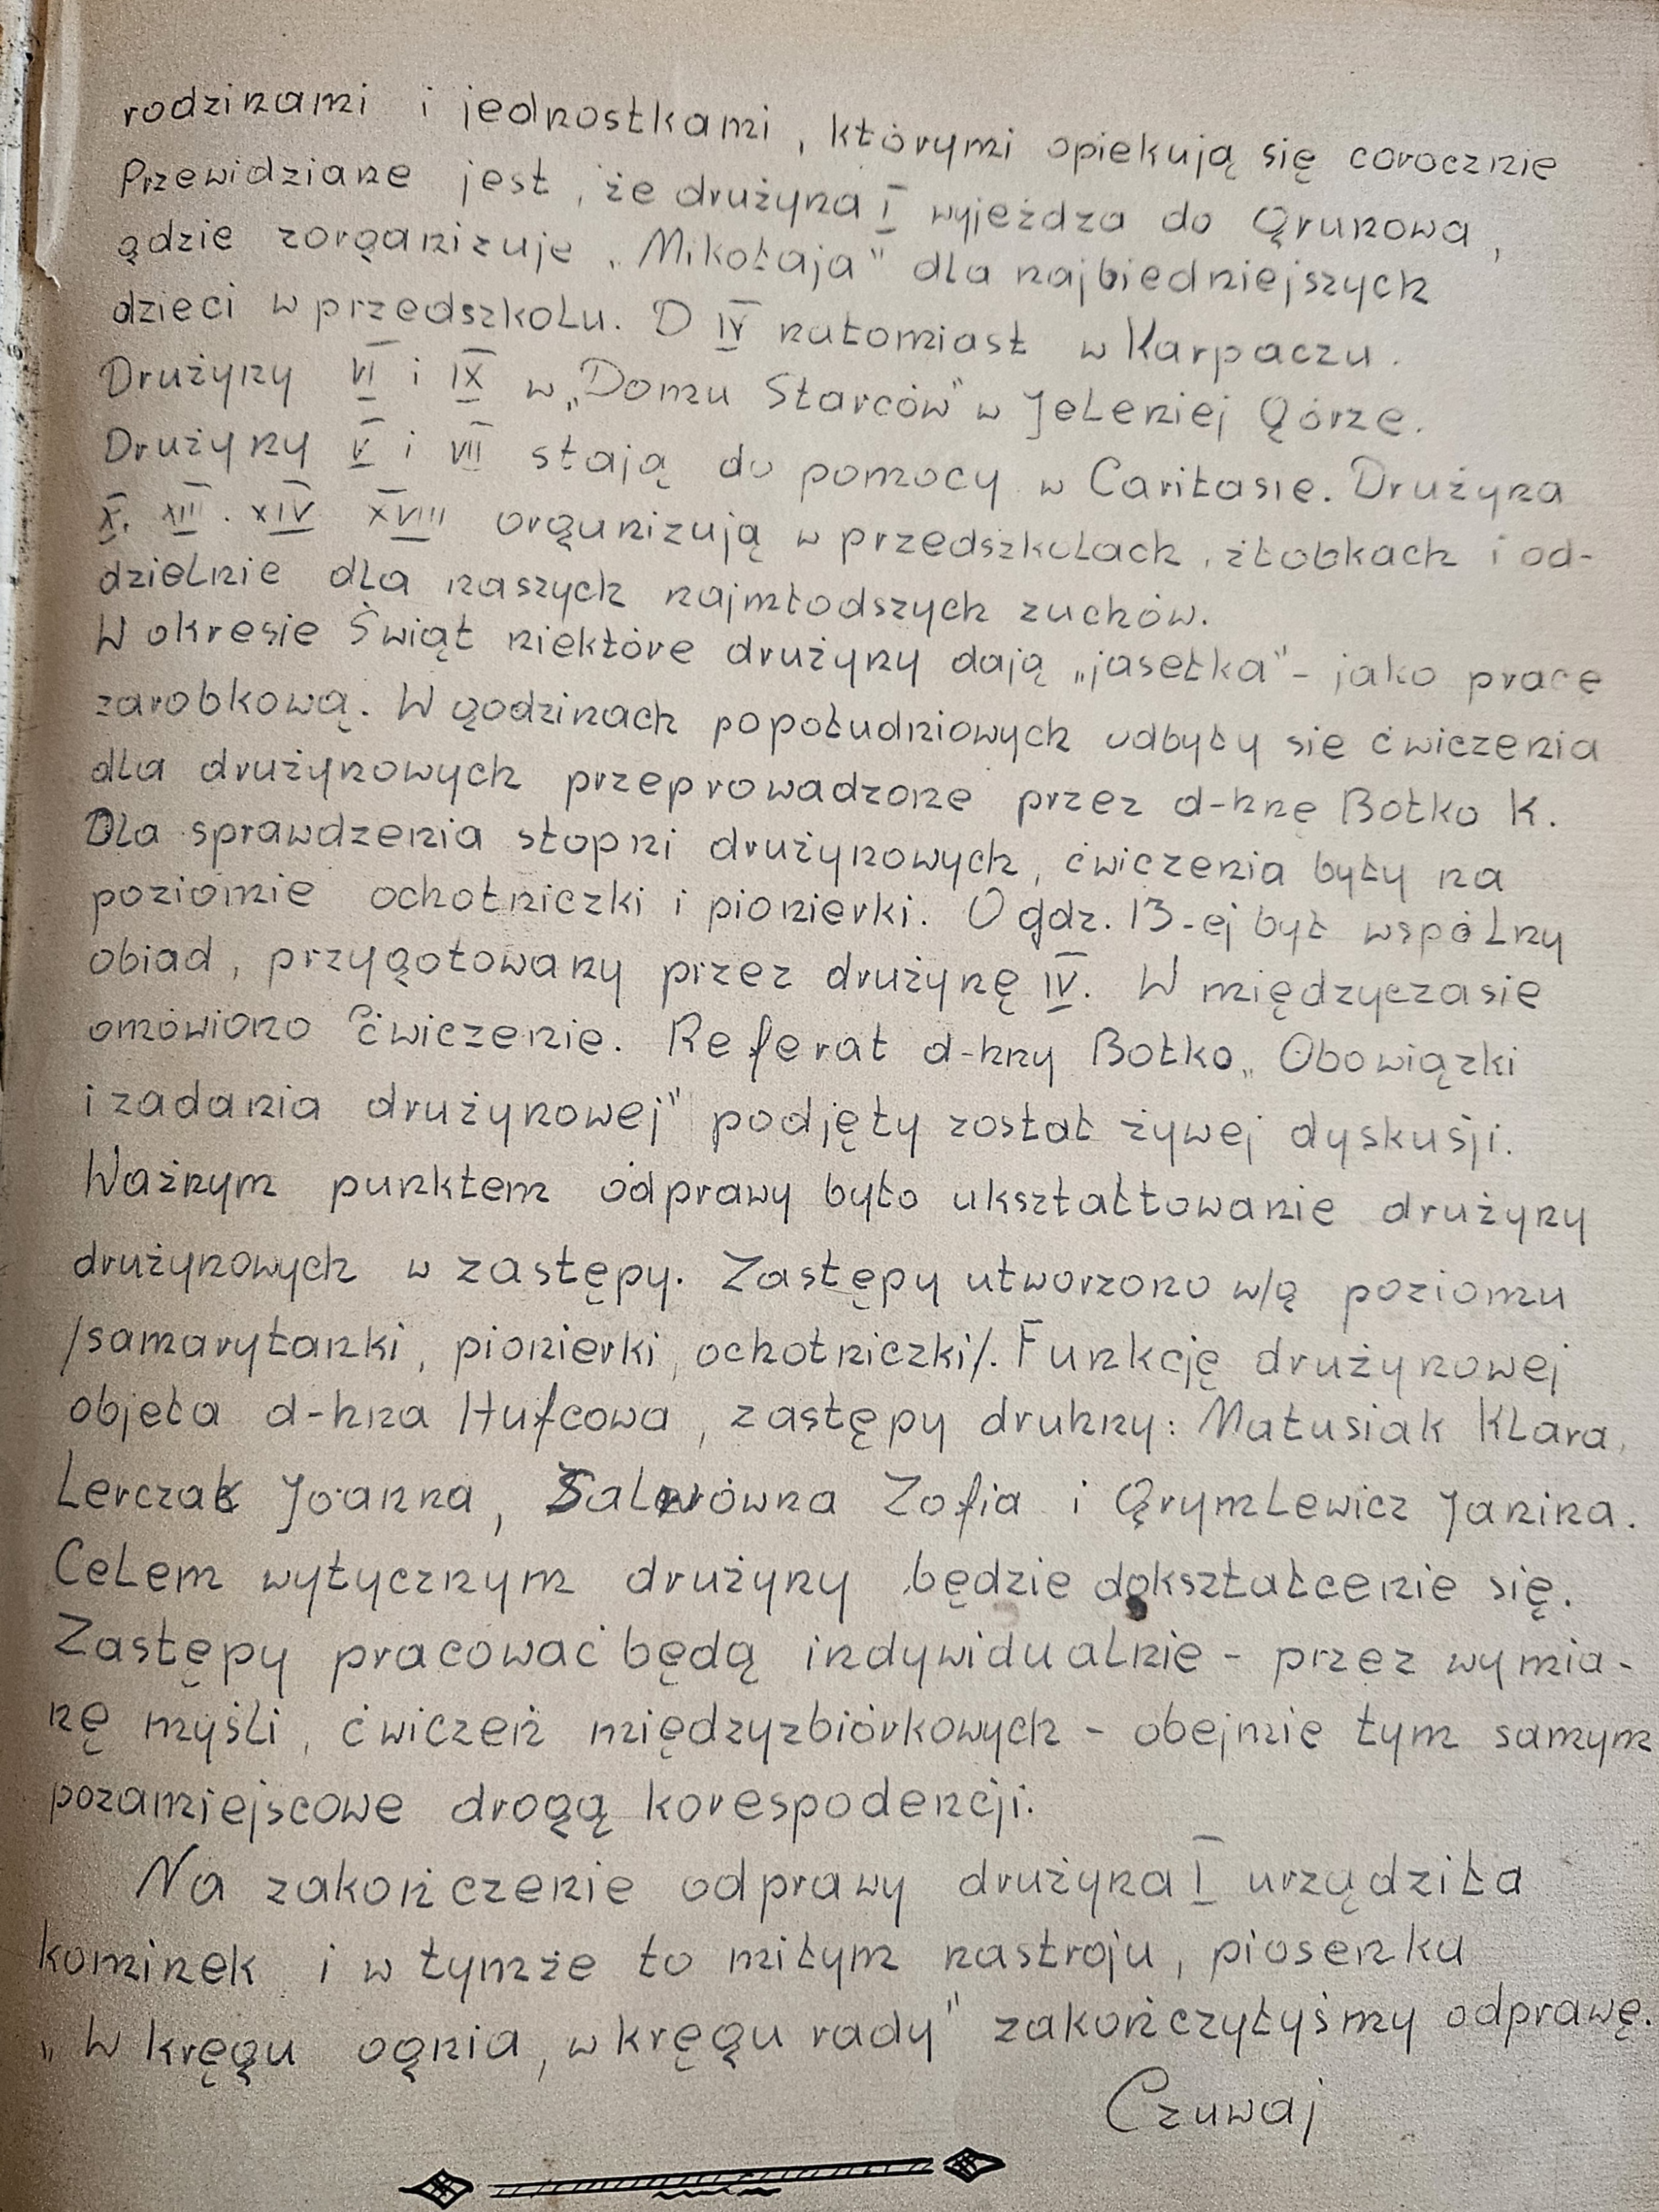 rodzinami i jednostkami, którymi opiekują się corocznie
Przewidziane jest, że drużyna I wyjeżdza do Grunowa,
gdzie zorganizuje „Mikołaja" dla najbiedniejszych
dzieci w przedszkolu. D IV natomiast w Karpaczu.
Drużyny VI i IX w „Domu Starców" w Jeleniej Górze.
Drużyny V i VII stają do pomocy w Caritasie. Drużyna
X. XIII. XIV XVIII organizują w przedszkolach, żłobkach i od-
dzielnie dla naszych najmłodszych zuchów.
W okresie Świąt niektóre drużyny dają „jasełka" - jako pracę
zarobkową. W godzinach popołudniowych odbyły sie ćwiczenia
dla drużynowych przeprowadzone przez d-hnę Bołko K.
Dla sprawdzenia stopni drużynowych, ćwiczenia były na
poziomie ochotniczki i pionierki. O gdz. 13-ej był wspólny
obiad, przygotowany przez drużynę IV. W międzyczasie
omówiono ćwiczenie. Referat d-hny Bołko „Obowiązki
i zadania drużynowej" podjęty został żywej dyskusji.
Ważnym punktem odprawy było ukształtowanie drużyny
drużynowych w zastępy. Zastępy utworzono w/g poziomu
/samarytanki, pionierki, ochotniczki/. Funkcję drużynowej
objeła d-hna Hufcowa, zastępy druhny: Matusiak Klara,
Lerczak Joanna, Zofia i Grymlewicz Janina.
Celem wytycznym drużyny będzie dokształcenie się.
Zastępy pracować będą indywidualnie - przez wymia-
nę myśli, ćwiczeń międzyzbiórkowych - obejmie tym samym
pozamiejscowe drogą korespodencji.
Na zakończenie odprawy drużyna I urządziła
kominek i w tymże to miłym nastroju, piosenką
„W kręgu ognia, w kręgu rady" zakończyłyśmy odprawę.
Czuwaj